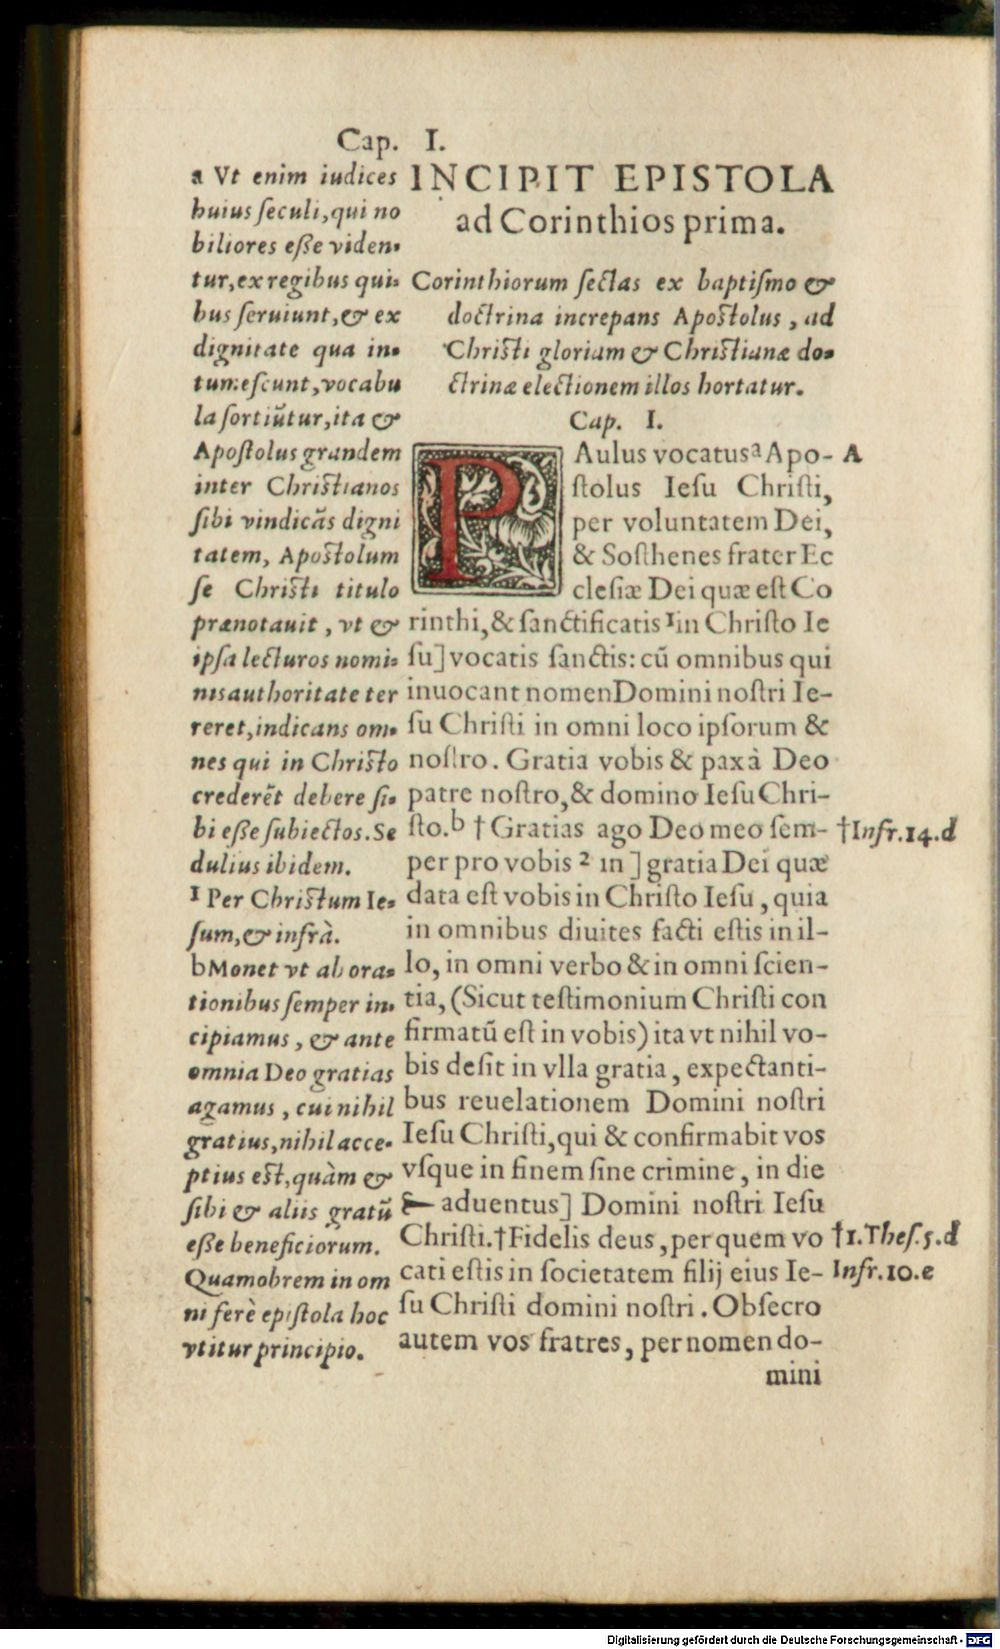 Cap. I.
a Vt enim iudices
huius ſeculi, qui no
biliores eſſe viden-
tur, ex regibus qui-
bus ſeruiunt, & ex
dignitate qua in-
tumeſcunt, vocabu
la ſortiũtur, ita &
Apoſtolus grandem
inter Chriſtianos
ſibi vindicãs digni
tatem, Apoſtolum
ſe Chriſti titulo
prænotauit, vt &
ipſa lecturos nomi-
nis authoritate ter
reret, indicans om-
nes qui in Chriſto
crederẽt debere ſi-
bi eſſe ſubiectos. Se
dulius ibidem.
1 Per Chriſtum Ie-
ſum, & infrà.
b Monet vt ab ora-
tionibus ſemper in-
cipiamus, & ante
omnia Deo gratias
agamus, cui nihil
gratius, nihil acce-
ptius eſt, quàm &
ſibi & aliis gratũ
eſſe beneficiorum.
Quamobrem in om
ni ferè epiſtola hoc
vtitur principio.
INCIPIT EPISTOLA
ad Corinthios prima.
Corinthiorum ſectas ex baptiſmo &
doctrina increpans Apoſtolus, ad
Chriſti gloriam & Chriſtianæ do-
ctrinæ electionem illos hortatur.
Cap. I.
PAulus vocatus a Apo- A
ſtolus Ieſu Chriſti,
per voluntatem Dei,
& Soſthenes frater Ec
cleſiæ Dei quæ eſt Co
rinthi, & ſanctificatis 1 in Chriſto Ie
ſu] vocatis ſanctis: cũ omnibus qui
inuocant nomen Domini noſtri Ie-
ſu Chriſti in omni loco ipſorum &
noſtro. Gratia vobis & pax à Deo
patre noſtro, & domino Ieſu Chri-
ſto. b † Gratias ago Deo meo ſem- †Infr. 14. d
per pro vobis 2 in ] gratia Dei quæ
data eſt vobis in Chriſto Ieſu, quia
in omnibus diuites facti eſtis in il-
lo, in omni verbo & in omni ſcien-
tia, (Sicut teſtimonium Chriſti con
firmatũ eſt in vobis) ita vt nihil vo-
bis deſit in vlla gratia, expectanti-
bus reuelationem Domini noſtri
Ieſu Chriſti, qui & confirmabit vos
vſque in finem ſine crimine, in die
aduentus] Domini noſtri Ieſu
Chriſti. †Fidelis deus, per quem vo †1. Theſ. 5. d
cati eſtis in ſocietatem filij eius Ie- Infr. 10. e
ſu Chriſti domini noſtri. Obſecro
autem vos fratres, per nomen do-
mini
Digitalisierung gefördert durch die Deutsche Forschungsgemeinschaft - DFG